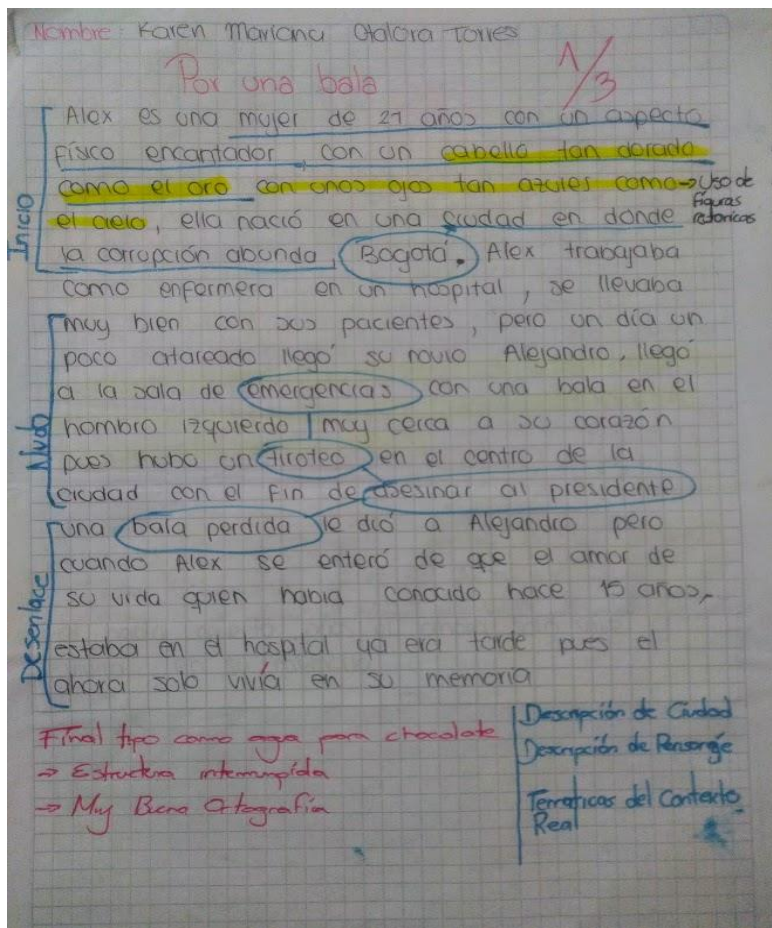 Nombre: Karen Mariana Otalora Torres
Por una bala
1/3
Alex es una mujer de 27 años con un aspecto
físico encantador, con un cabello tan dorado
como el oro con unos ojos tan azules como → Uso de
figuras
retoricas
el cielo, ella nació en una ciudad en donde
la corrupción abunda, Bogotá. Alex trabajaba
como enfermera en un hospital, se llevaba
Inicio
muy bien con sus pacientes, pero un día un
poco atareado llegó su novio Alejandro, llegó
a la sala de emergencias con una bala en el
hombro izquierdo muy cerca a su corazón
pues hubo un tiroteo en el centro de la
ciudad con el fin de asesinar al presidente
Nudo
una bala perdida le dió a Alejandro pero
cuando Alex se enteró de que el amor de
su vida quien habia conocido hace 15 años,
estaba en el hospital ya era tarde pues el
ahora solo vivía en su memoria
Desenlace
Final tipo como agua para chocolate
→ Estructura interrumpida
→ Muy Buena Ortografía
Descripción de Ciudad
Descripción de Personaje
Tematicas del Contexto
Real